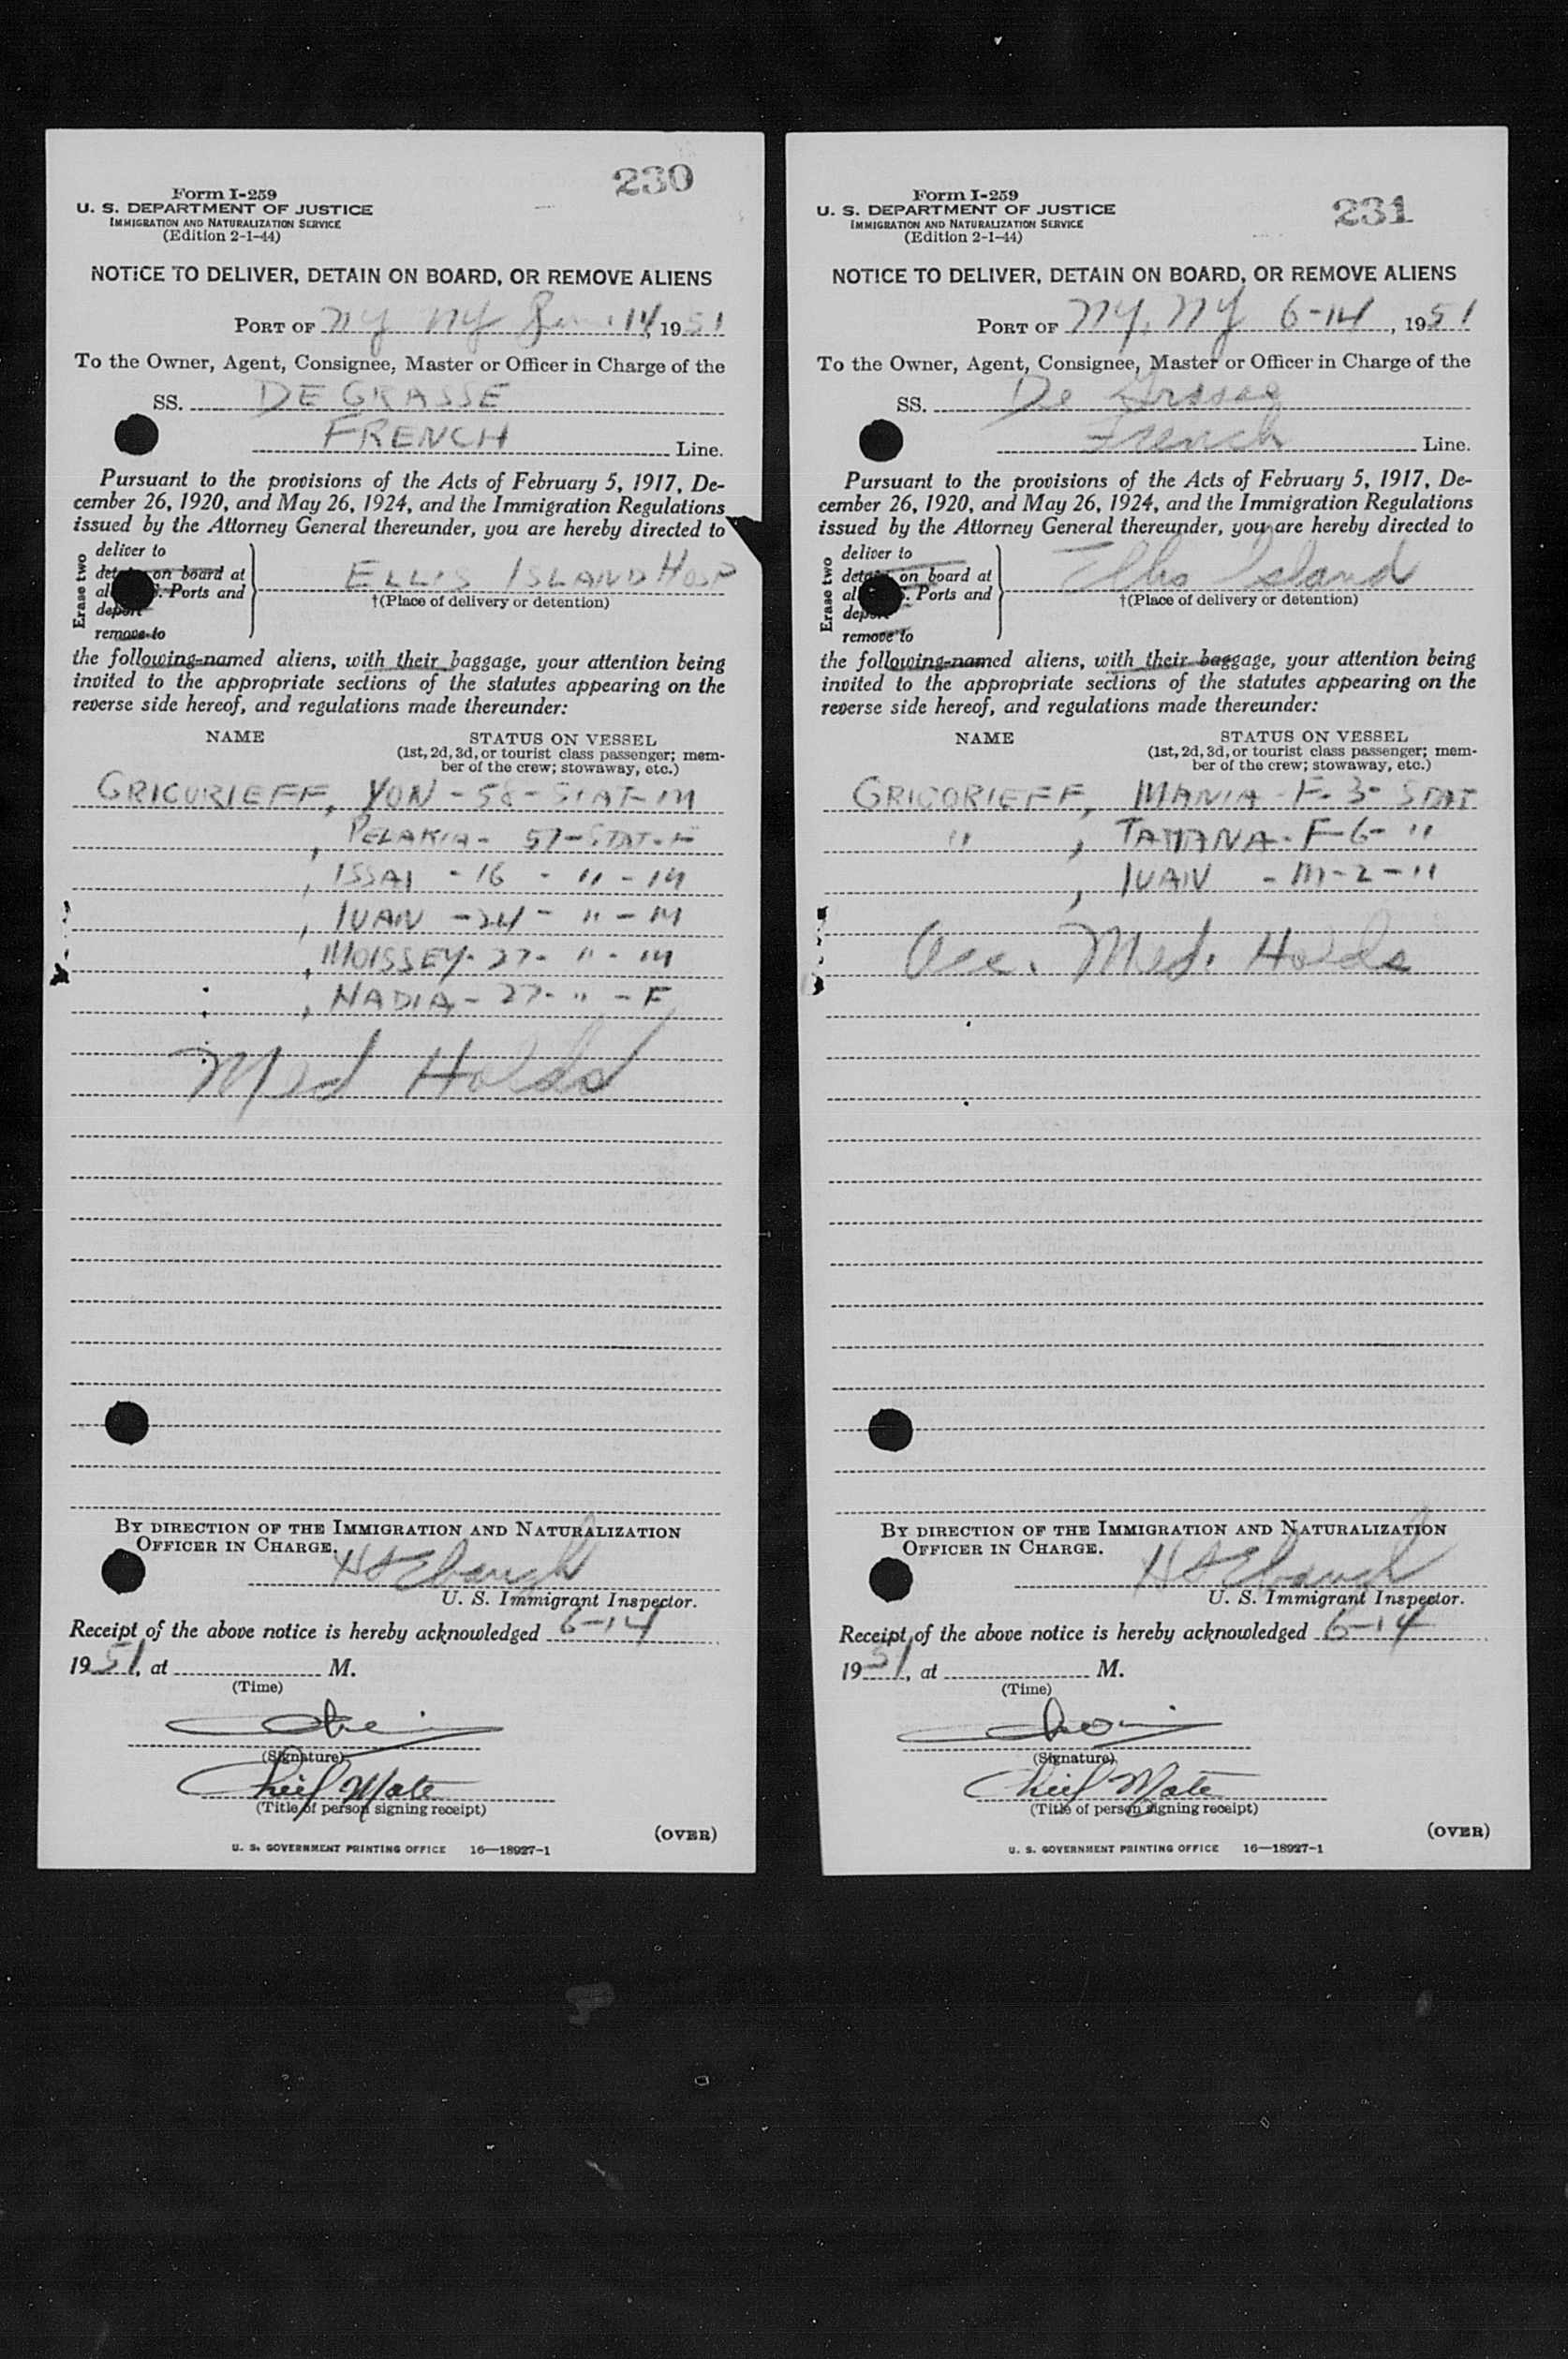 230
Form I-259
U. S. DEPARTMENT OF JUSTICE
IMMIGRATION AND NATURALIZATION SERVICE
(Edition 2-1-44)
NOTICE TO DELIVER, DETAIN ON BOARD, OR REMOVE ALIENS
PORT OF NY NY 14, 1951
To the Owner, Agent, Consignee, Master or Officer in Charge of the
SS. DE GRASSE
FRENCH Line.
Pursuant to the provisions of the Acts of February 5, 1917, De-
cember 26, 1920, and May 26, 1924, and the Immigration Regulations
issued by the Attorney General thereunder, you are hereby directed to
Erase two
deliver to
on board at
Ports and
remove to
ELLIS ISLAND HOSP
†(Place of delivery or detention)
the following-named aliens, with their baggage, your attention being
invited to the appropriate sections of the statutes appearing on the
reverse side hereof, and regulations made thereunder:
NAME STATUS ON VESSEL
(1st, 2d, 3d, or tourist class passenger; mem-
ber of the crew; stowaway, etc.)
GRIGORIEFF, YON - 58 - STAT - M
, PELAKIA - 57 - STAT - F
, ISSAI - 16 - " - M
, IVAN - 24 - " - M
, MOISSEY - 27 - " - M
, NADIA - 27 - " - F
Med Holds
BY DIRECTION OF THE IMMIGRATION AND NATURALIZATION
OFFICER IN CHARGE.
H A Ebaugh
U. S. Immigrant Inspector.
Receipt of the above notice is hereby acknowledged 6-14
1951, at M.
(Time)
(Signature)
Chief Mate
(Title of person signing receipt)
(OVER)
U. S. GOVERNMENT PRINTING OFFICE 16—18927-1
231
Form I-259
U. S. DEPARTMENT OF JUSTICE
IMMIGRATION AND NATURALIZATION SERVICE
(Edition 2-1-44)
NOTICE TO DELIVER, DETAIN ON BOARD, OR REMOVE ALIENS
PORT OF NY, NY 6-14, 1951
To the Owner, Agent, Consignee, Master or Officer in Charge of the
SS. De Grasse
French Line.
Pursuant to the provisions of the Acts of February 5, 1917, De-
cember 26, 1920, and May 26, 1924, and the Immigration Regulations
issued by the Attorney General thereunder, you are hereby directed to
Erase two
deliver to
on board at
Ports and
remove to
Ellis Island
†(Place of delivery or detention)
the following-named aliens, with their baggage, your attention being
invited to the appropriate sections of the statutes appearing on the
reverse side hereof, and regulations made thereunder:
NAME STATUS ON VESSEL
(1st, 2d, 3d, or tourist class passenger; mem-
ber of the crew; stowaway, etc.)
GRIGORIEFF, MANIA - F - 3 - STAT
" , TATIANA - F - 6 - "
, IVAN - M - 2 - "
Acc. Med. Holds
BY DIRECTION OF THE IMMIGRATION AND NATURALIZATION
OFFICER IN CHARGE.
H A Ebaugh
U. S. Immigrant Inspector.
Receipt of the above notice is hereby acknowledged 6-14
1951, at M.
(Time)
(Signature)
Chief Mate
(Title of person signing receipt)
(OVER)
U. S. GOVERNMENT PRINTING OFFICE 16—18927-1